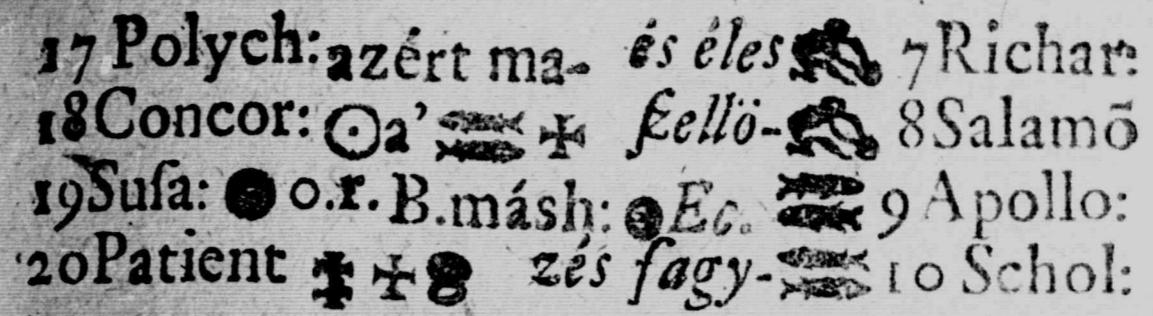 17 Polych: azért ma- és éles ♒ 7 Richar:
18 Concor: ☉ a' ♓ ✠ ſzellö- ♒ 8 Salamō
19 Suſa: ● o.r. B. másh: Ec. ♓ 9 Apollo:
20 Patient ✠ zés fagy- ♓ 10 Schol: